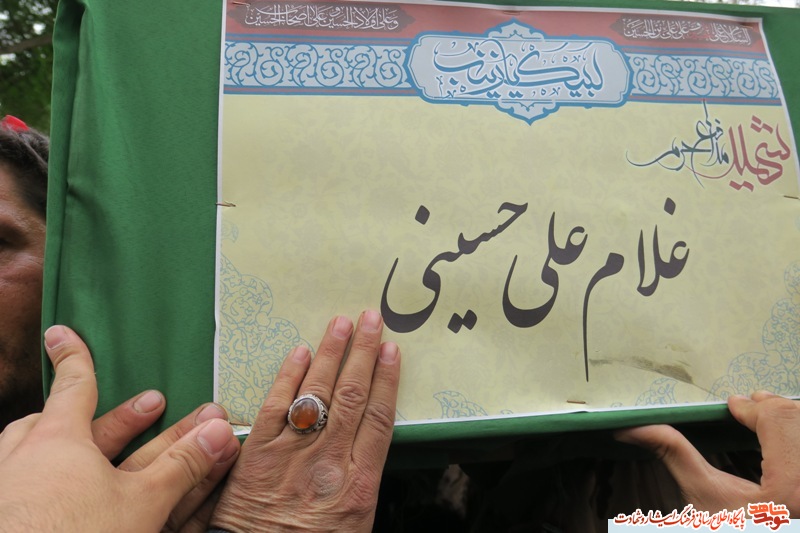 السلام علی الحسین و علی علی بن الحسین
و علی اولاد الحسین و علی اصحاب الحسین
لبیک یا زینب
شهید مدافع حرم
غلام علی حسینی
نوید شاهد
پایگاه اطلاع رسانی فرهنگ ایثار و شهادت